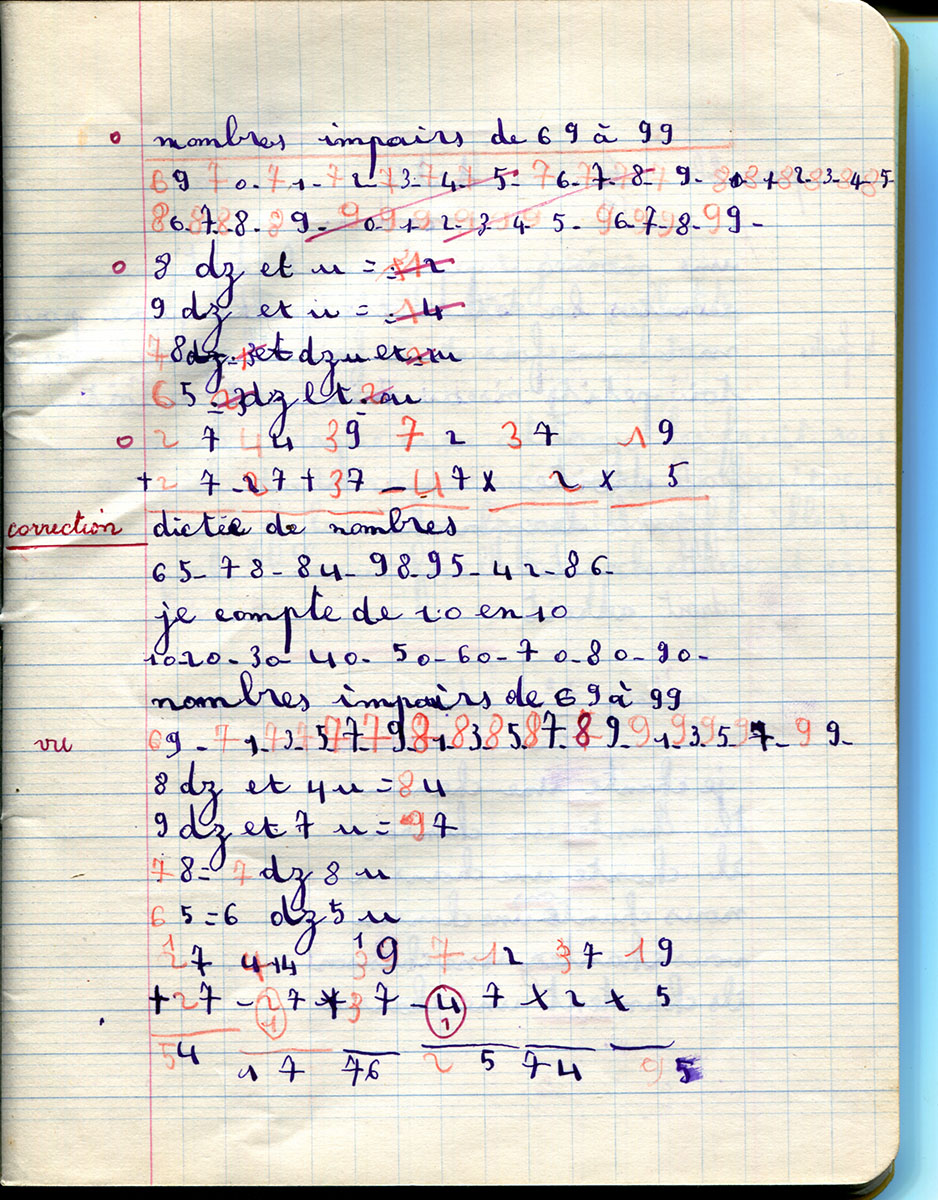 o nombres impairs de 69 à 99
69 70-71-72-73-74-75-76-77-78-79-80-81-82-83-84-85
86-87-88-89-90-91-92-93-94-95-96-97-98-99-
o 8 dz et u = 12
9 dz et u = 14
78
65
o 27 44 39 72 37 19
+27 -27 +37 -47 x 2 x 5
correction dictée de nombres
65-78-84-98-95-42-86-
je compte de 10 en 10
10-20-30-40-50-60-70-80-90-
nombres impairs de 69 à 99
vu 69-71-73-75-77-79-81-83-85-87-89-91-93-95-97-99-
8 dz et 4u = 84
9 dz et 7 u = 97
78 = 7 dz 8 u
65 = 6 dz 5 u
1 27 4 14 1 39 7 12 37 19
+27 -27 1 +37 -4 1 7 x 2 x 5
54 17 76 25 74 95